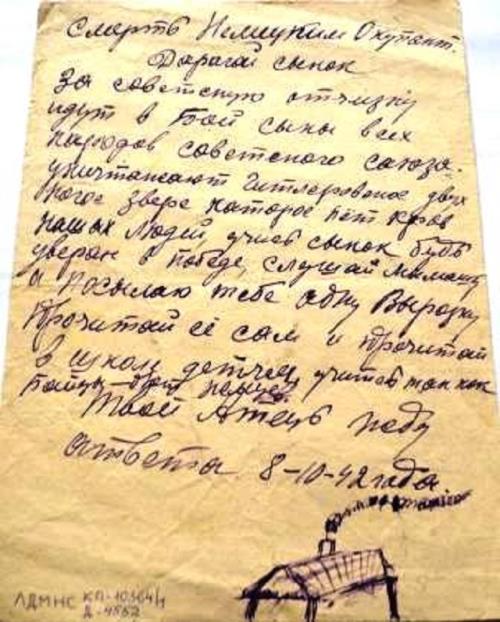 Смерть Немецким Окупант.
Дарагай сынок
За советскую отчизну
идут в Бой сыны всех
народов советского союза.
уничтажают Гитлеровское двух
ногое звере каторое пёт кров
наших людей, учись сынок будь
уверан в победе, слушай мамашу
а посылаю тебе адну Вырезку
прочитай её сам и прочитай
в школ детчем учитев так как
байцы бют немцев.
Твой Атець жду
атвета 8-10-42 года
ЛДМНС КП-10364/1
Д-4552